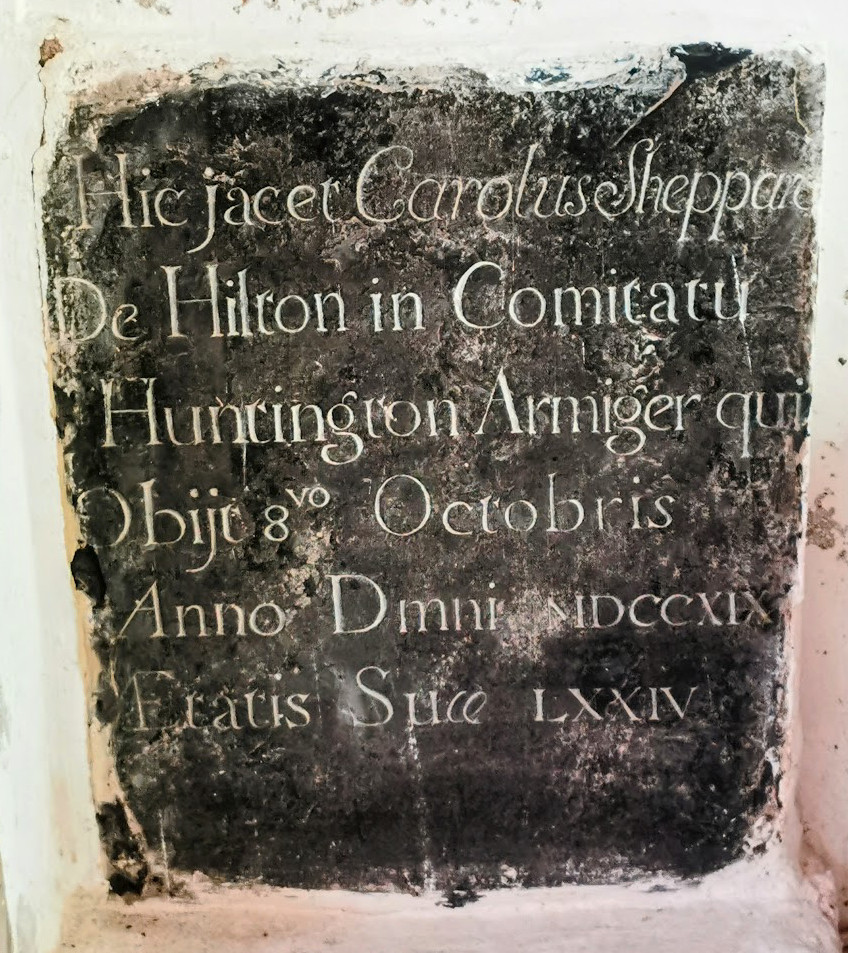 Hic jacet Carolus Sheppard
De Hilton in Comitatu
Huntington Armiger qui
Obijt 8vo Octobris
Anno Dmni MDCCXIX
Etatis Suæ LXXIV